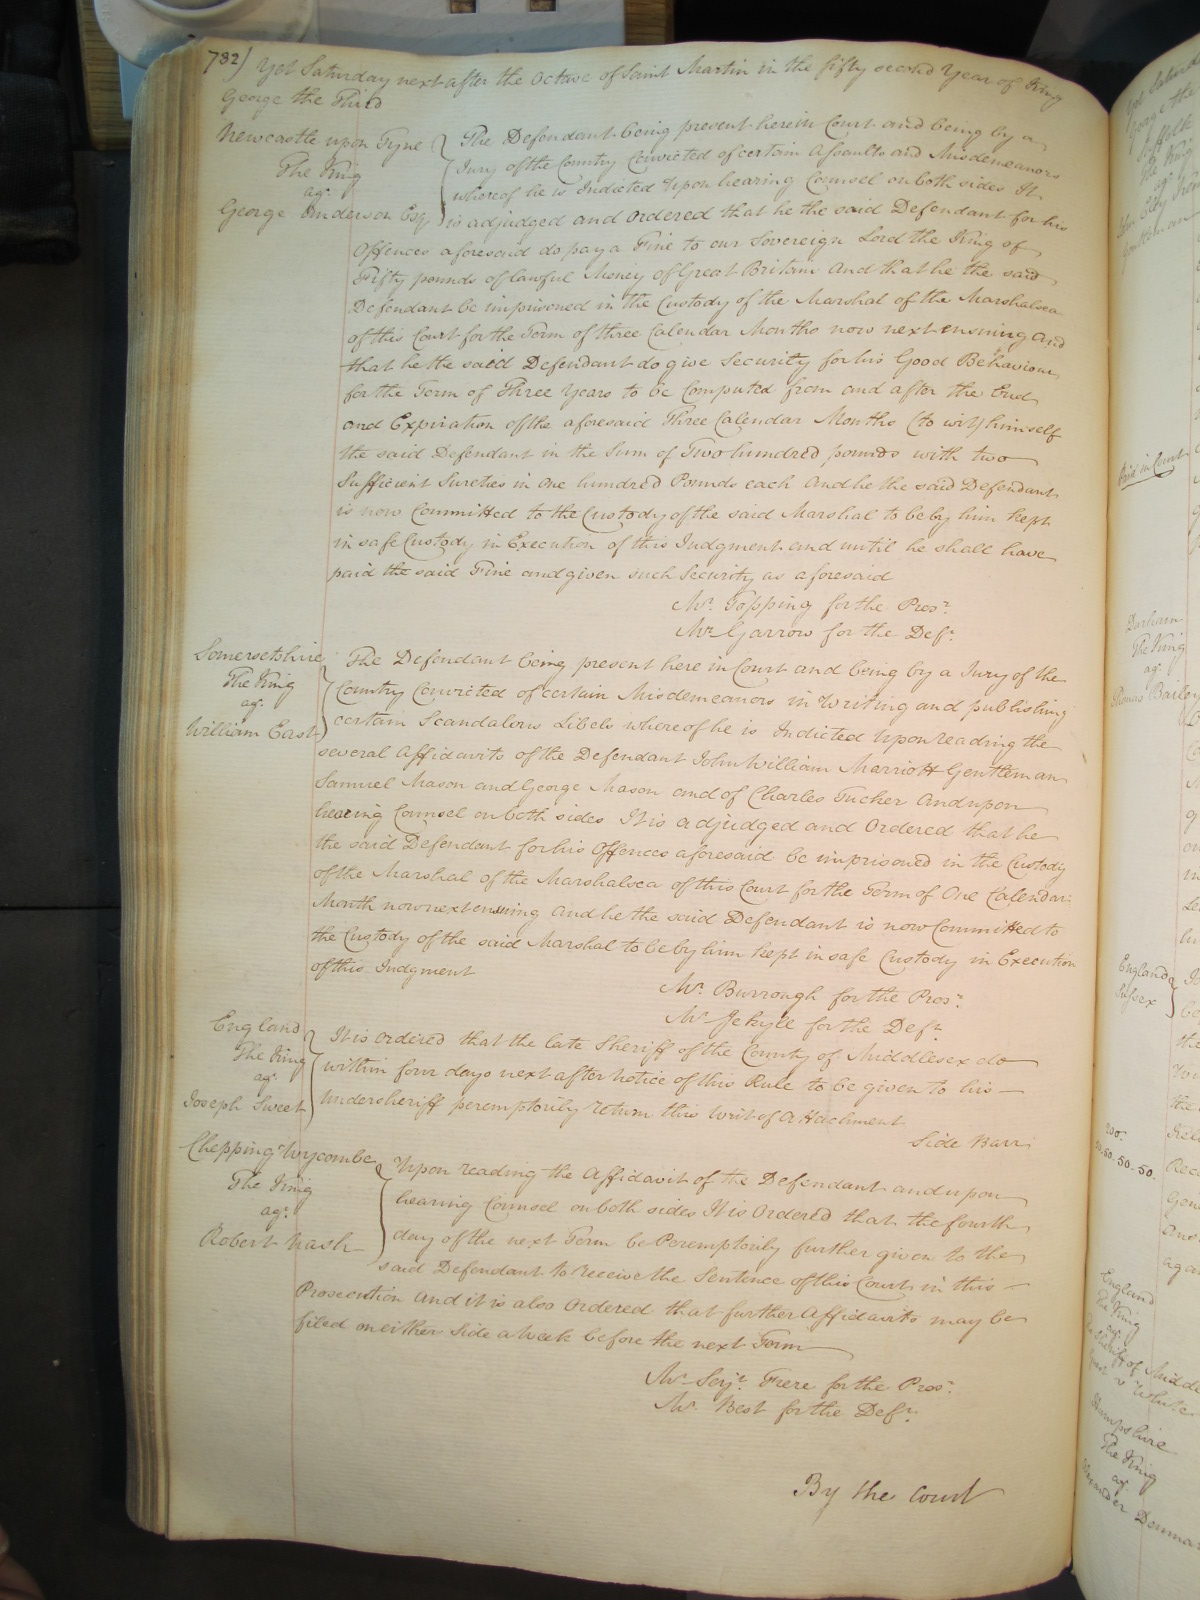 782) Yet Saturday next after the Octave of Saint Martin in the fifty second Year of King
George the Third
Newcastle upon Tyne
The King
agt
George Anderson Esqr
The Defendant being present here in Court and being by a
Jury of the Country Convicted of certain Assaults and Misdemeanors
whereof he is Indicted Upon hearing Counsel on both sides It
is adjudged and Ordered that he the said Defendant for his
Offences aforesaid do pay a Fine to our Sovereign Lord the King of
Fifty pounds of lawful Money of Great Britain And that he the said
Defendant be imprisoned in the Custody of the Marshal of the Marshalsea
of this Court for the Term of three Calendar Months now next ensuing And
that he the said Defendant do give Security for his Good Behaviour
for the Term of Three Years to be Computed from and after the End
and Expiration of the aforesaid Three Calendar Months (to wit) himself
the said Defendant in the Sum of Two hundred pounds with two
Sufficient Sureties in One hundred Pounds each And he the said Defendant
is now Committed to the Custody of the said Marshal to be by him kept
in safe Custody in Execution of this Judgment and until he shall have
paid the said Fine and given such Security as aforesaid
Mr. Topping for the Prosr.
Mr. Garrow for the Deft.
Somersetshire
The King
agt
William East
The Defendant being present here in Court and being by a Jury of the
Country Convicted of certain Misdemeanors in Writing and publishing
certain Scandalous Libels whereof he is Indicted Upon reading the
several Affidavits of the Defendant John William Marriott Gentleman
Samuel Mason and George Mason and of Charles Tucker And upon
hearing Counsel on both sides It is adjudged and Ordered that he
the said Defendant for his Offences aforesaid be imprisoned in the Custody
of the Marshal of the Marshalsea of this Court for the Term of One Calendar
Month now next ensuing And he the said Defendant is now Committed to
the Custody of the said Marshal to be by him kept in safe Custody in Execution
of this Judgment
Mr. Burrough for the Prosr.
Mr. Jekyll for the Deft.
England
The King
agt
Joseph Sweet
It is Ordered that the late Sheriff of the County of Middlesex do
within four days next after notice of this Rule to be given to his
Undersheriff peremptorily return this Writ of Attachment
Side Barr
Chepping Wycombe
The King
agt
Robert Nash
Upon reading the Affidavit of the Defendant and upon
hearing Counsel on both sides It is Ordered that the fourth
day of the next Term be Peremptorily further given to the
said Defendant to receive the Sentence of this Court in this
Prosecution And it is also Ordered that further Affidavits may be
filed on either Side a Week before the next Term
Mr. Serjt. Frere for the Prosr.
Mr. Best for the Deft.
By the Court
Suffolk
The King
agt
Paid in Court
Durham
The King
agt
Thomas Bailey
England
Sussex
200.
50.50.50.50.
England
The King
agt
Hampshire
The King
agt